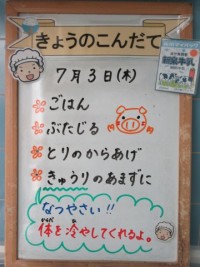 きょうのこんだて
7月3日(木)
ごはん
ぶたじる
とりのからあげ
きゅうりのあまずに
なつやさい!!
体を冷やしてくれるよ。